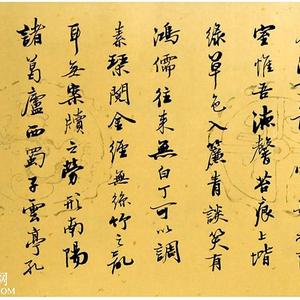 室惟吾德馨苔痕上堦
綠草色入簾青談笑有
鴻儒往來無白丁可以調
素琴閱金經無絲竹之亂
耳無案牘之勞形南陽
諸葛廬西蜀子雲亭孔
网